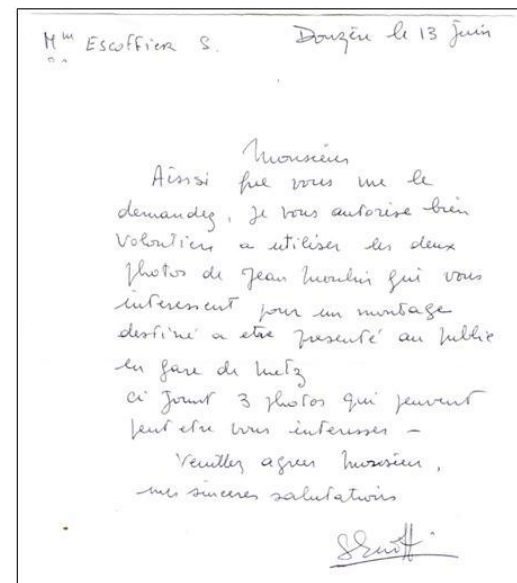 Mme ESCOFFIER S.
Donzère le 13 Juin
Monsieur
Ainssi que vous me le
demandez, je vous autorise bien
volontiers a utiliser les deux
photos de Jean Moulin qui vous
interessent pour un montage
destiné a etre presenté au public
en gare de Metz
ci joint 3 photos qui peuvent
peut etre vous interesser –
Veuillez agreer Monsieur,
mes sinceres salutations